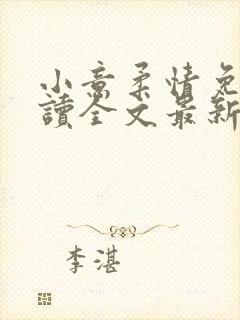 小意柔情免
讀全文最新
李湛